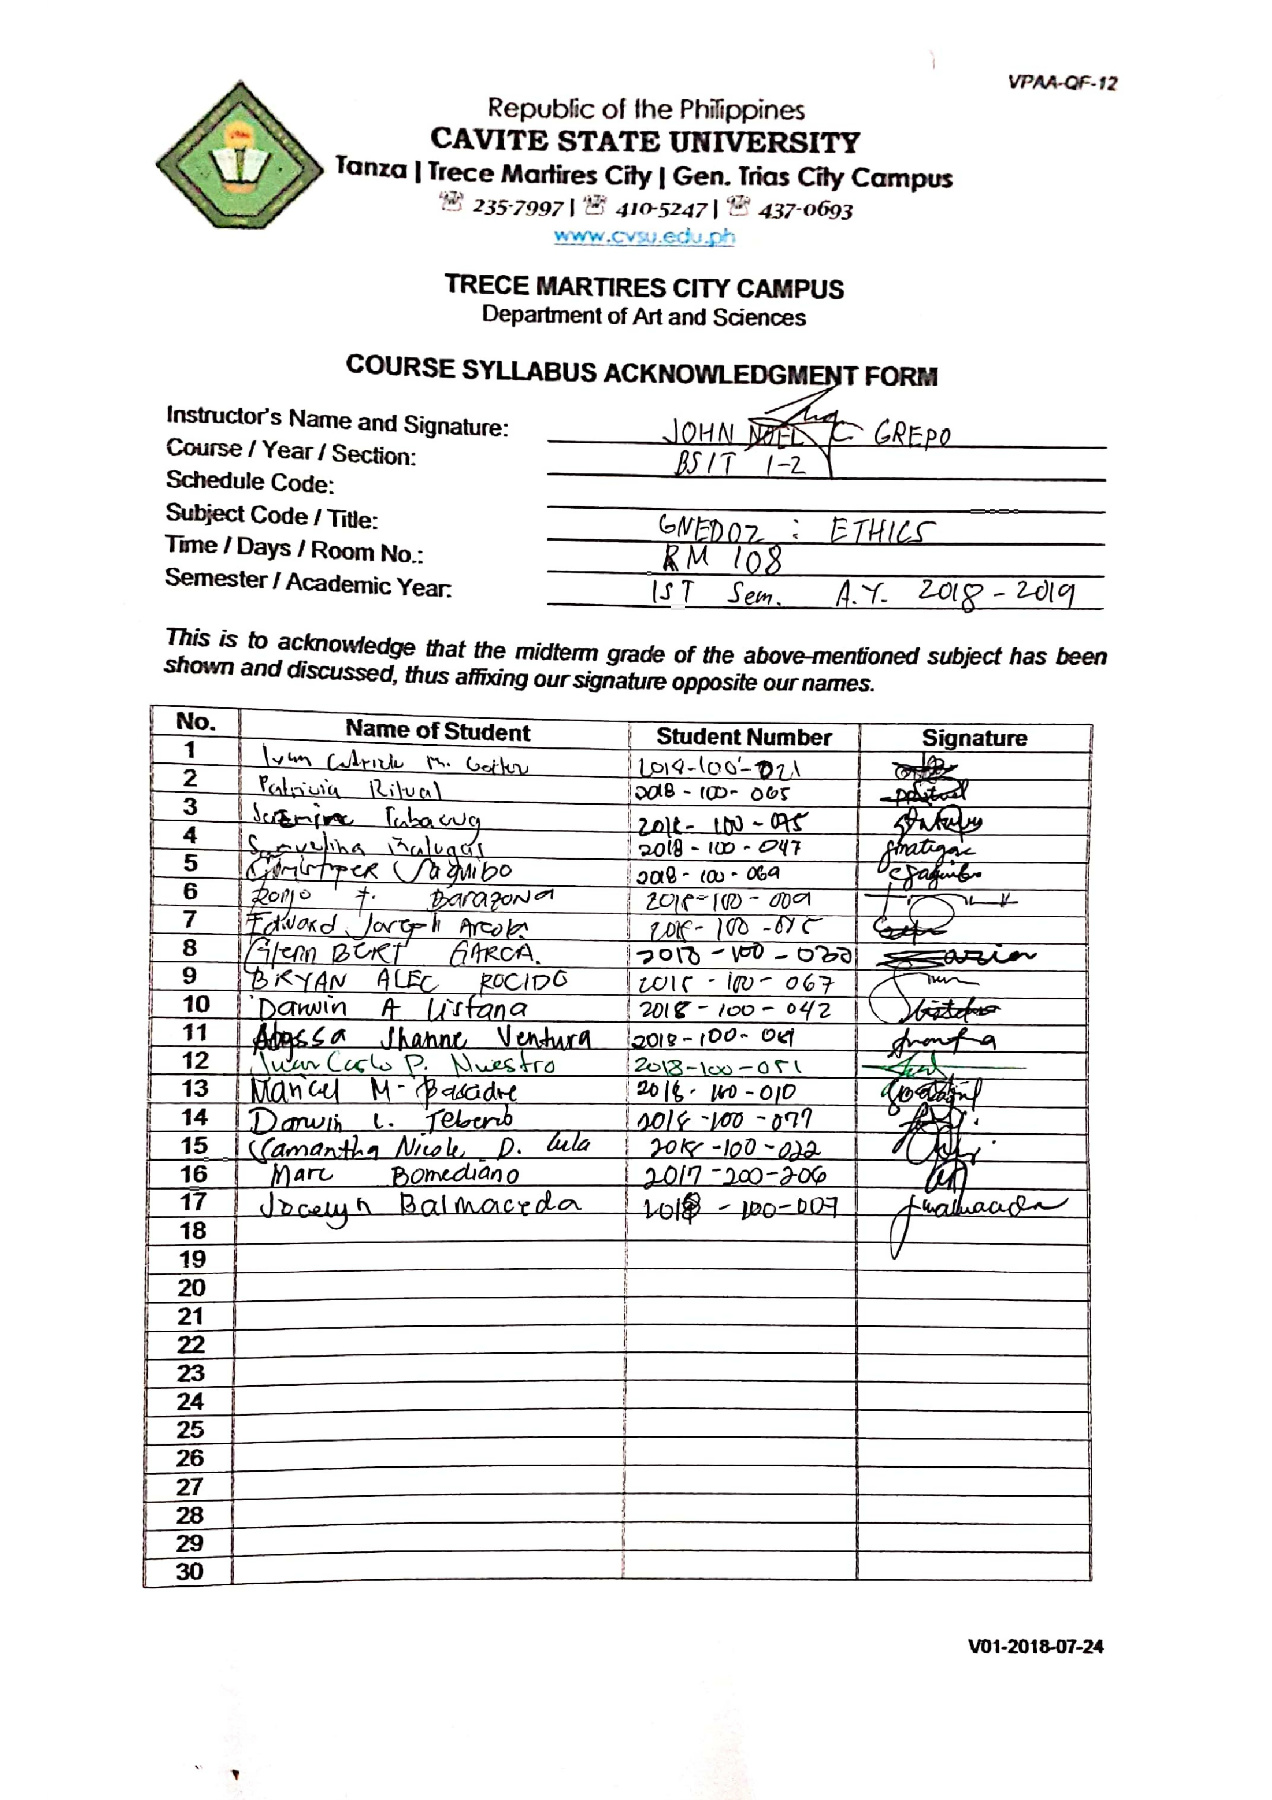 VPAA-QF-12
Republic of the Philippines
CAVITE STATE UNIVERSITY
Tanza | Trece Martires City | Gen. Trias City Campus
☏ 235-7997 | ☏ 410-5247 | ☏ 437-0693
www.cvsu.edu.ph
TRECE MARTIRES CITY CAMPUS
Department of Art and Sciences
COURSE SYLLABUS ACKNOWLEDGMENT FORM
Instructor's Name and Signature: JOHN NOEL C GREPO
Course / Year / Section: BSIT 1-2
Schedule Code:
Subject Code / Title: GNED02 : ETHICS
Time / Days / Room No.: RM 108
Semester / Academic Year: 1ST Sem. A.Y. 2018-2019
This is to acknowledge that the midterm grade of the above-mentioned subject has been
shown and discussed, thus affixing our signature opposite our names.
No. Name of Student Student Number Signature
1 M. 2018-100-021
2 Patricia Ritual 2018-100-065
3 2018-100-075
4 2018-100-047
5 Saguibo 2018-100-069
6 Romo F. Barazona 2018-100-009
7 Edward Joseph 2018-100-
8 Glenn BERT GARCA. 2018-100-
9 BRYAN ALEC ROCIDO 2018-100-067
10 Darwin A Listana 2018-100-042
11 Shanne Ventura 2018-100-
12 Juan Carlo P. Nuestro 2018-100-051
13 Maricel M. 2018-100-010
14 Darwin L. 2018-100-077
15 Samantha Nicole D. Lula 2018-100-022
16 Marc Bomediano 2017-200-206
17 Jocelyn Balmaceda 2018-100-007
18
19
20
21
22
23
24
25
26
27
28
29
30
V01-2018-07-24